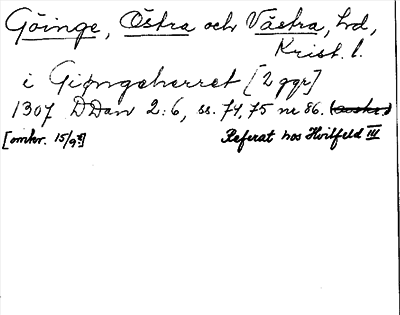 Göinge, Östra och Västra, hd,
Krist. l.
i Giøngeherret [2 ggr]
1307 DDan 2:6, ss. 74, 75 nr 86.
[omkr. 15/9] Referat hos Hvitfeld III